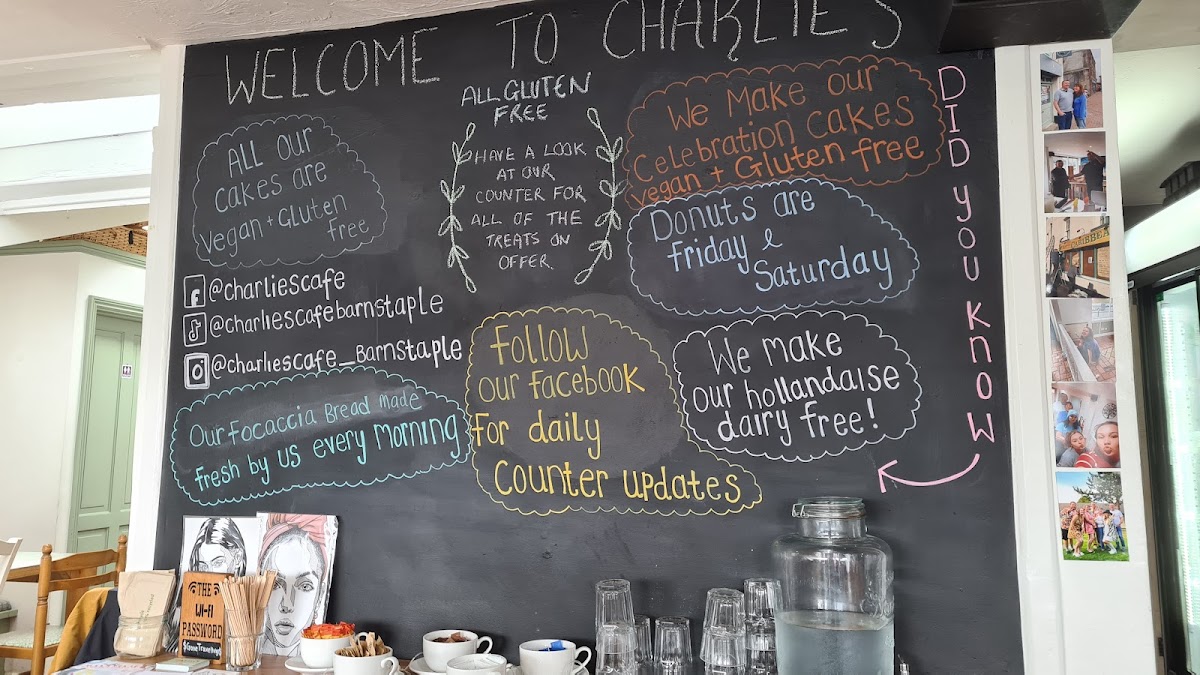 WELCOME TO CHARLIE'S
ALL GLUTEN
FREE
HAVE A LOOK
AT OUR
COUNTER FOR
ALL OF THE
TREATS ON
OFFER.
ALL OUR
cakes are
vegan + Gluten
free
@charliescafe
@charliescafebarnstaple
@charliescafe_Barnstaple
Our Focaccia Bread Made
fresh by us every Morning
Follow
our facebook
For daily
Counter updates
We Make our
Celebration cakes
vegan + Gluten free
Donuts are
friday &
Saturday
We make
our hollandaise
dairy free!
DID you KNOW
THE
WI-FI
PASSWORD